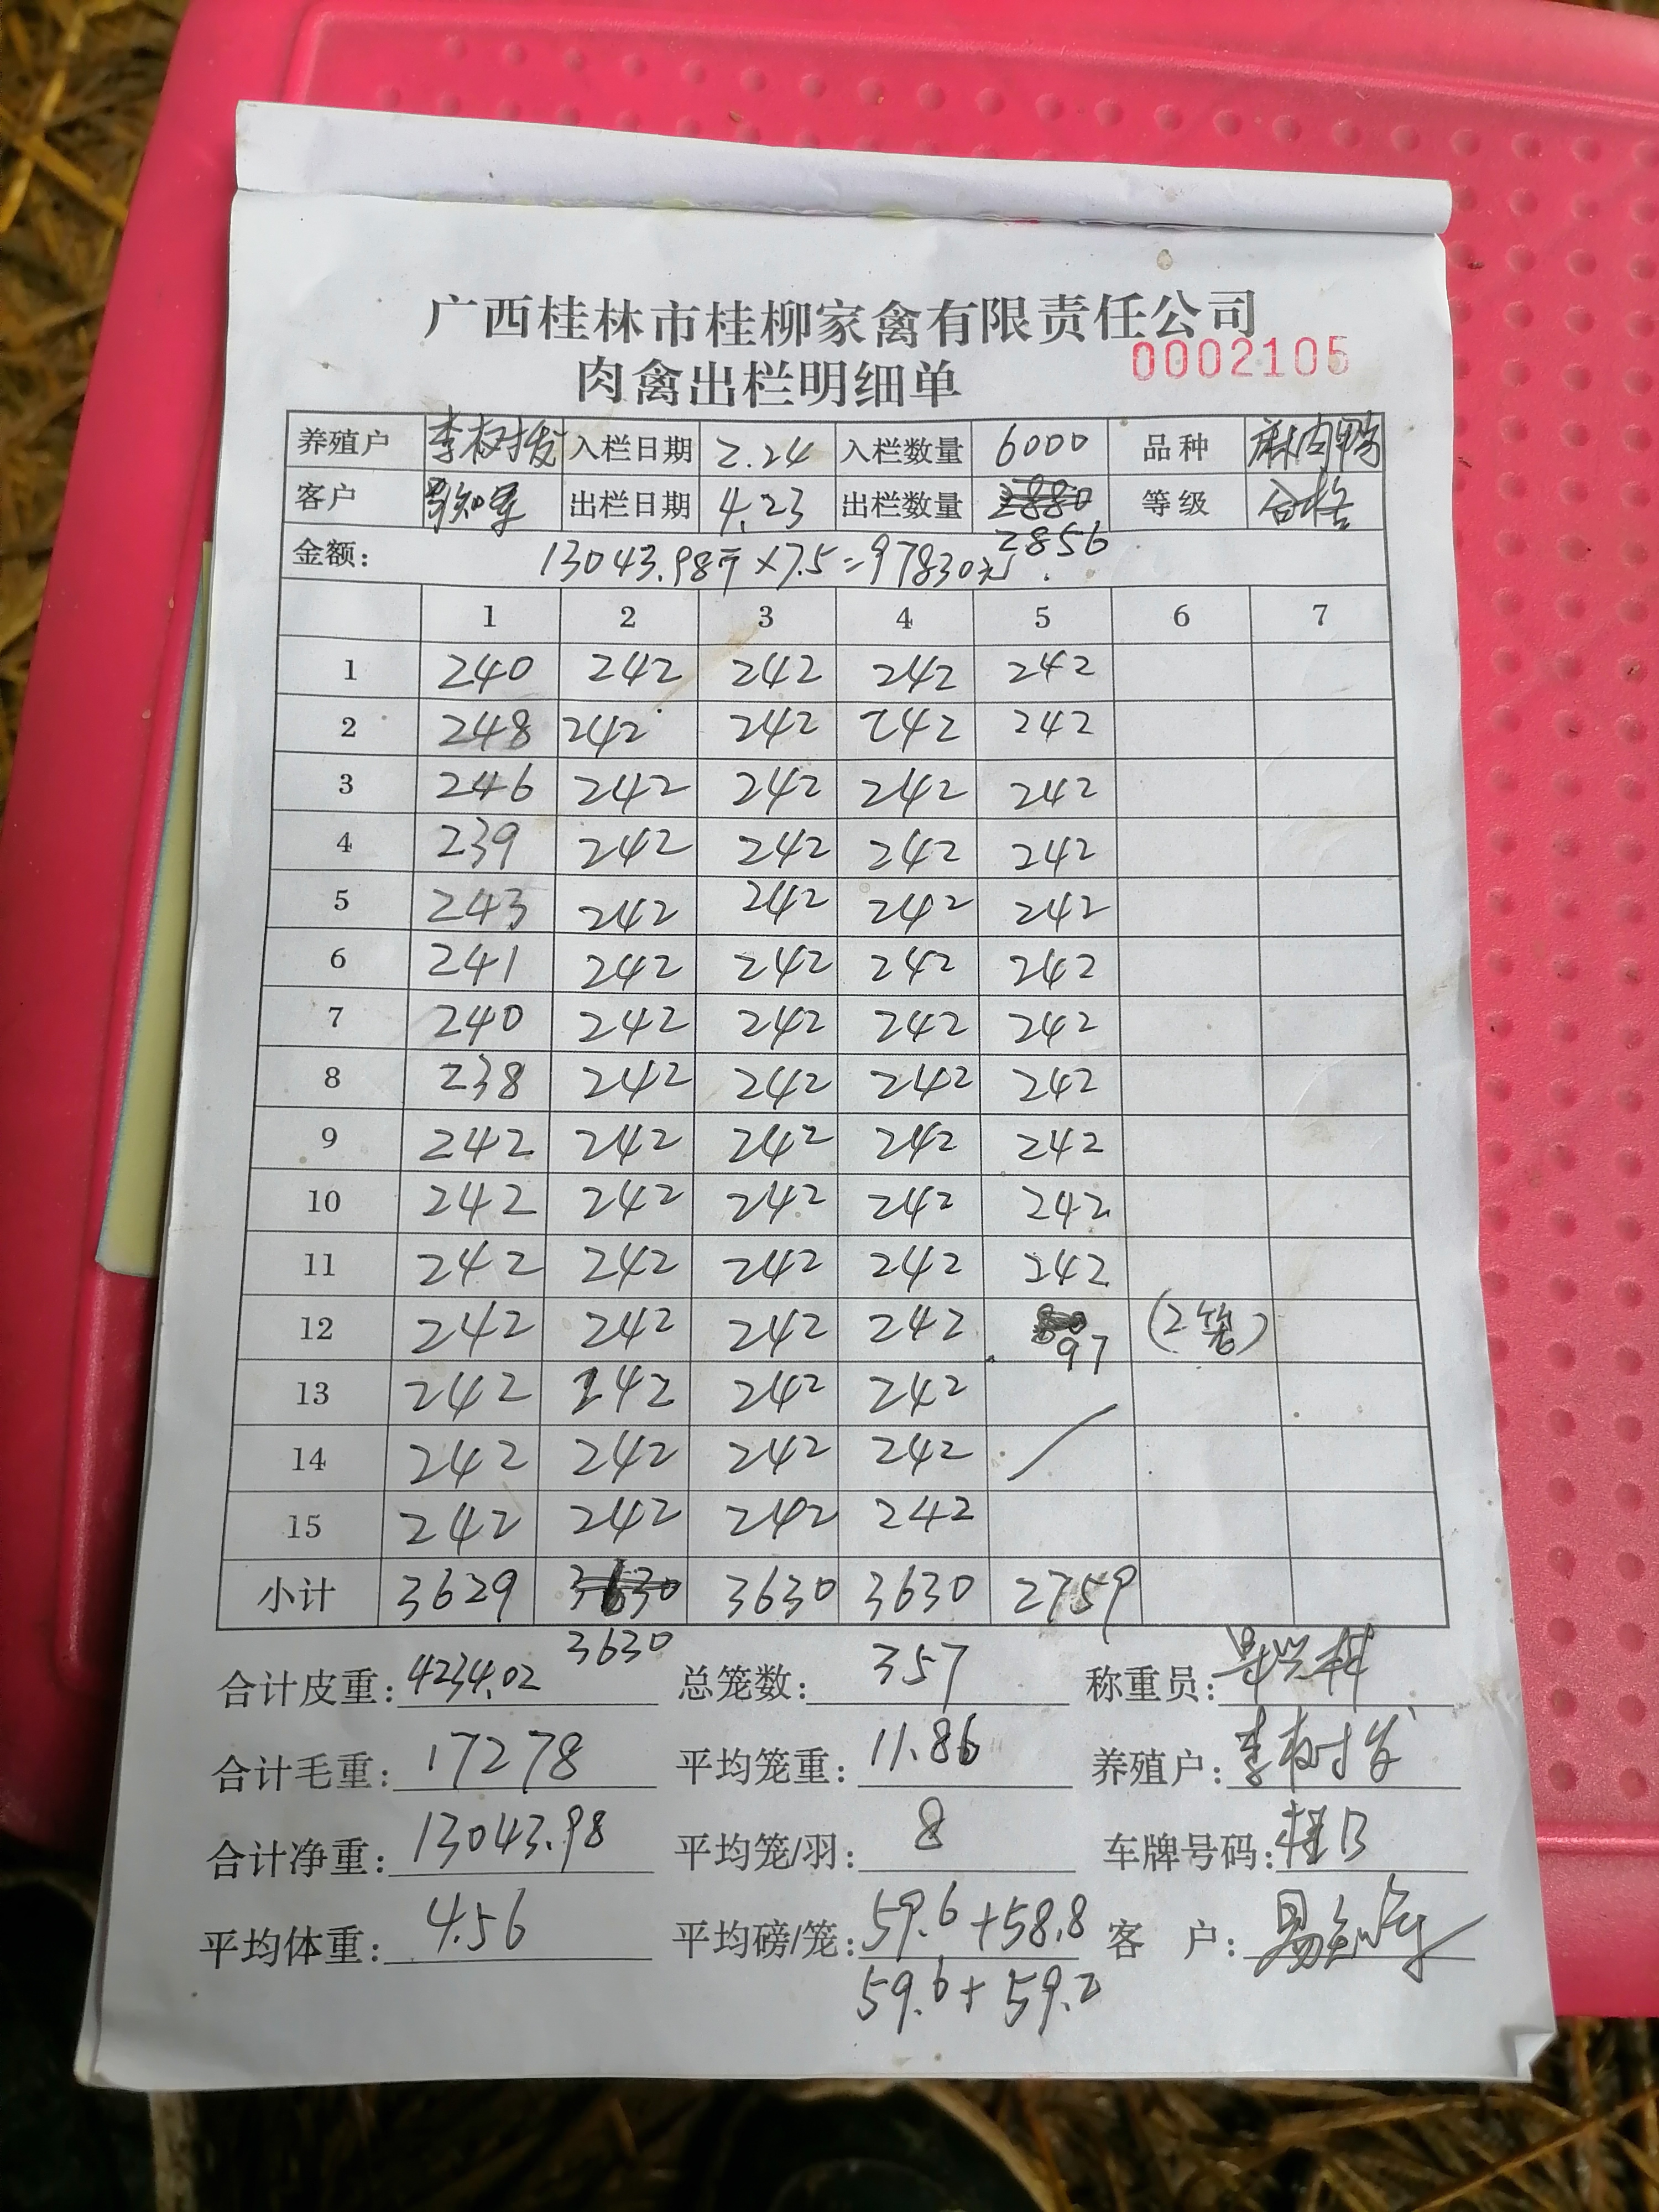 广西桂林市桂柳家禽有限责任公司
肉禽出栏明细单 0002105
养殖户 李树发 入栏日期 2.24 入栏数量 6000 品种 麻肉鸭
客户 出栏日期 4.23 出栏数量 2880 等级 合格
2856
金额: 13043.98斤×7.5=97830元.
1 2 3 4 5 6 7
1 240 242 242 242 242
2 248 242 242 242 242
3 246 242 242 242 242
4 239 242 242 242 242
5 243 242 242 242 242
6 241 242 242 242 242
7 240 242 242 242 242
8 238 242 242 242 242
9 242 242 242 242 242
10 242 242 242 242 242
11 242 242 242 242 242
12 242 242 242 242 97 (2笼)
13 242 242 242 242
14 242 242 242 242
15 242 242 242 242
小计 3629 3630 3630 3630 2759
3630
合计皮重: 4234.02 总笼数: 357 称重员:
合计毛重: 17278 平均笼重: 11.86 养殖户: 李树发
合计净重: 13043.98 平均笼/羽: 8 车牌号码: 桂B
平均体重: 4.56 平均磅/笼: 59.6+58.8 客 户:
59.6+59.2